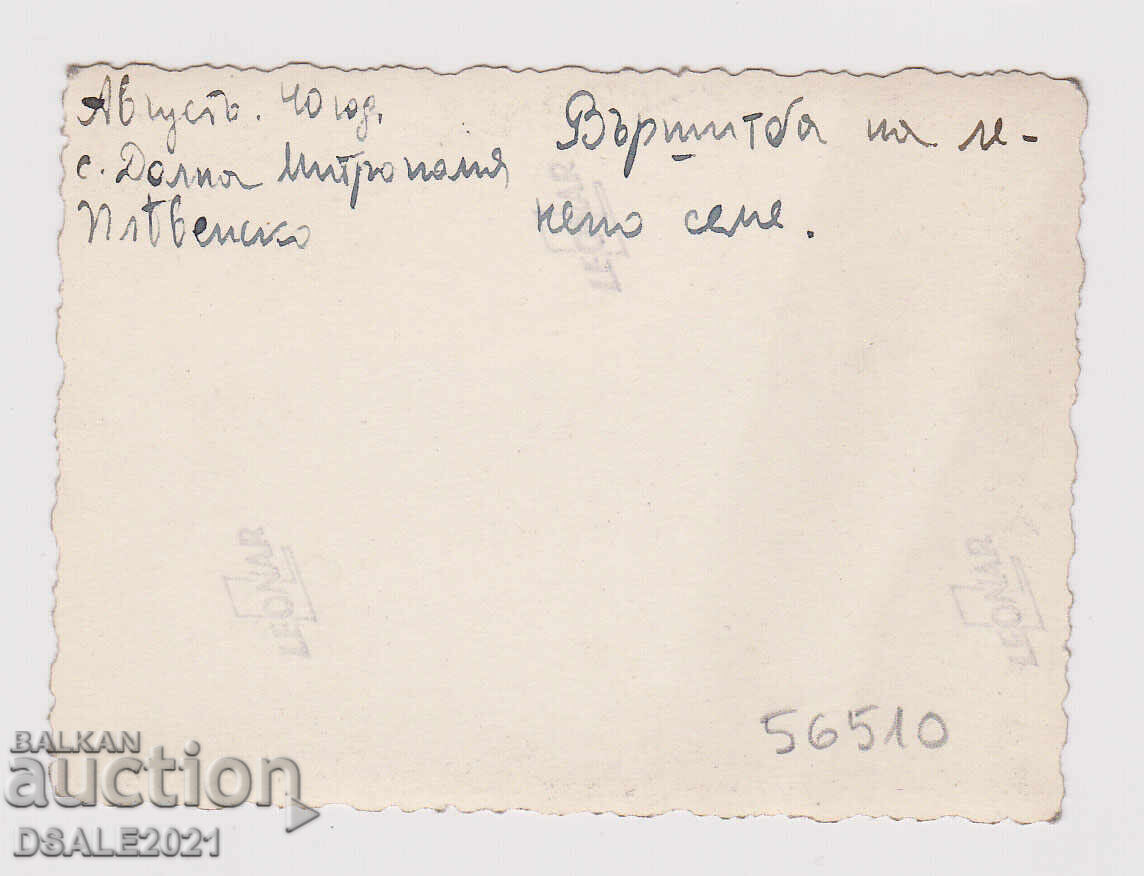 Августъ. 40 год.
с. Долна Митрополия
Плѣвенско
Вършитба на ле-
нено семе.
LEONAR
LEONAR
LEONAR
56510
BALKAN
auction
DSALE2021